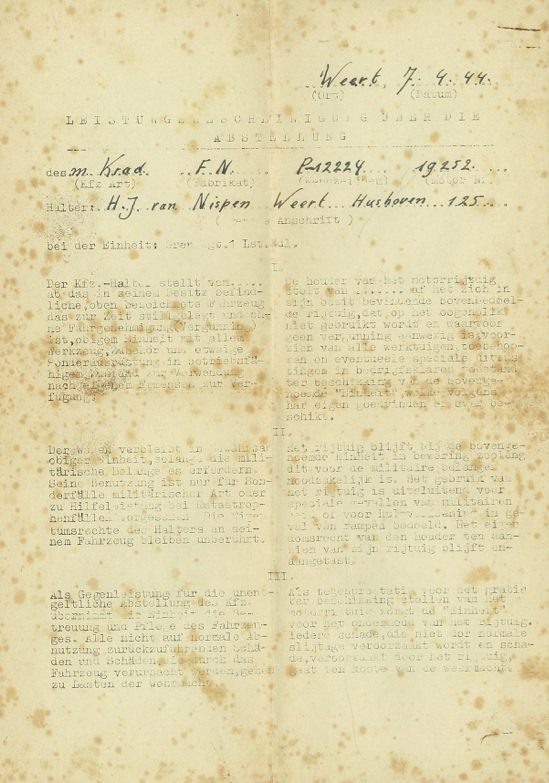 Weert, 7. 4. 44.
(Ort) (Datum)
LEISTUNGSBESCHEINIGUNG ÜBER DIE
ABSTELLUNG
des m. Krad. F.N. P-12224 19252.
(Kfz Art) (Fabrikat)
Halter: H.J. van Nispen Weert Husboven 125
Anschrift )
bei der Einheit:
I.
Der Kfz.-Halter stellt vom.....
ab das in seinem Besitz befind-
liche, oben bezeichnete Fahrzeug
das zur Zeit stillgelegt und oh-
ne
ist, obiger Einheit mit allem
Werkzeug, Zubehör und etwaige
zur Verwendung
nach eigenem Ermessen zur Ver-
fügung.
De houder van het motorrijtuig
stelt van ....... af het zich in
zijn bezit bevindende bovenbedoel-
de rijtuig, dat op het oogenblik
niet gebruikt wordt en waarvoor
geen vergunning aanwezig is, voor-
zien van alle werktuigen, toebehoo-
ren en eventueele speciale
in
ter beschikking van de bovenge-
noemde "Einheit", welke volgens
haar eigen goedvinden er over be-
schikt.
II.
Der Wagen verbleibt in
obiger Einheit, solange die mili-
tärische Belange es erfordern.
Seine Benutzung ist nur für Son-
derfälle militärischer Art oder
zu Hilfeleistung bei Katastrop-
henfällen vorgesehen. Die Eigen-
tumsrechte der Halters an sei-
nem Fahrzeug bleiben unberührt.
Het rijtuig blijft bij de bovenge-
noemde Einheit in bewaring zoolang
dit voor de militaire belangen
noodzakelijk is. Het gebruik van
het rijtuig is uitsluitend voor
speciale gevallen van militairen
aard of voor hulpverleening in ge-
val van rampen bedoeld. Het eigen-
domsrecht van den houder ten aan-
zien van zijn rijtuig blijft on-
aangetast.
III.
Als Gegenleistung für die unent-
geltliche Abstellung des Kfz.
übernimmt die Einheit die Be-
treuung und Pflege des Fahrzeu-
ges. Alle nicht auf normale Ab-
nutzung zurückzuführenden Schä-
den und Schäden, die durch das
Fahrzeug verursacht werden, gehen
zu Lasten der Wehrmacht.
Als tegenprestatie voor het gratis
ter beschikking stellen van het
motorrijtuig zorgt de "Einheit"
voor het onderhoud van het rijtuig.
Iedere schade, die niet door normale
slijtage veroorzaakt wordt en scha-
de, veroorzaakt door het rijtuig,
gaat ten koste van de weermacht.